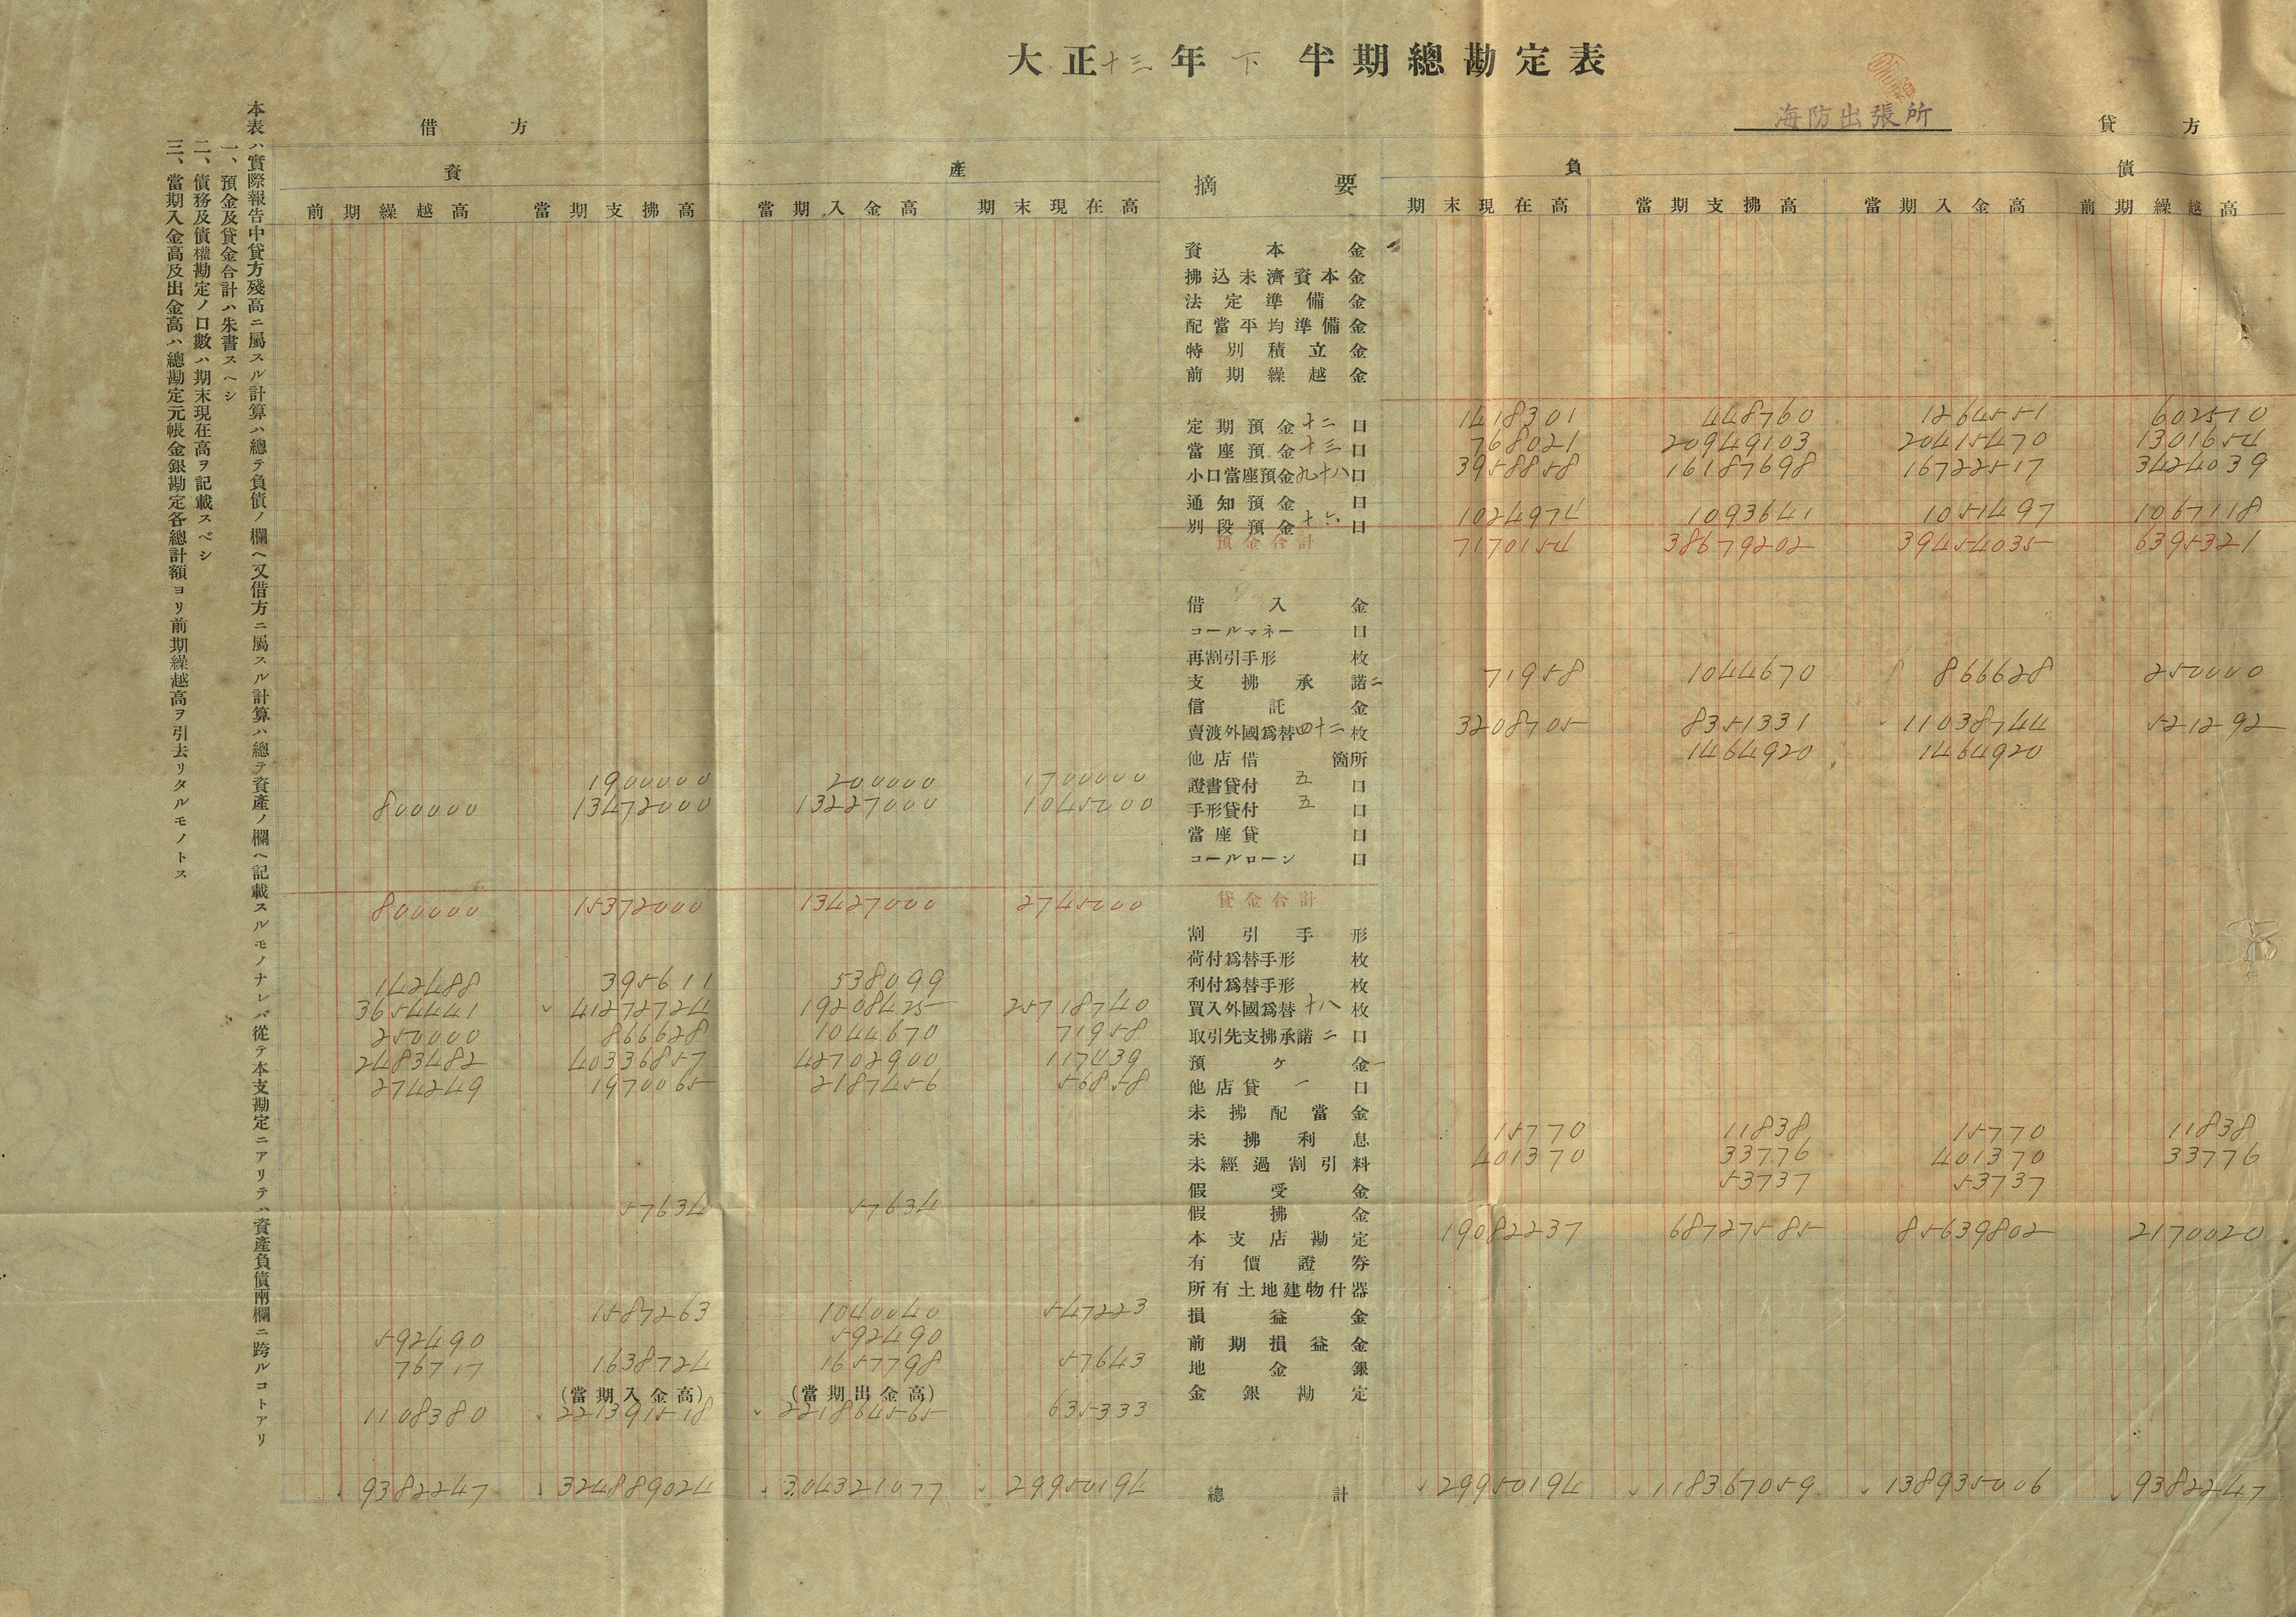 大正十三年下半期總勘定表
海防出張所
借方
貸方
資產
摘要
負債
前期繰越高 當期支拂高 當期入金高 期末現在高 期末現在高 當期支拂高 當期入金高 前期繰越高
資本金
拂込未濟資本金
法定準備金
配當平均準備金
特別積立金
前期繰越金
定期預金十二口 1418301 448760 1264551 602510
當座預金十三口 768021 20949103 20415470 1301654
小口當座預金九十八口 3958858 16187698 16722517 3424039
通知預金口
別段預金十六口 1024974 1093641 1051497 1067118
預金合計 7170154 38679202 39454035 6395321
借入金
コールマネー口
再割引手形枚
支拂承諾二 71958 1044670 866628 250000
信託金
賣渡外國爲替四十二枚 3208705 8351331 11038744 521292
他店借箇所 1464920 1464920
1900000 200000 1700000 證書貸付五口
800000 13472000 13227000 1045000 手形貸付五口
當座貸口
コールローン口
800000 15372000 13427000 2745000 貸金合計
割引手形
142488 395611 538099 荷付爲替手形枚
利付爲替手形枚
3654441 41272724 19208425 25718740 買入外國爲替十八枚
250000 866628 1044670 71958 取引先支拂承諾二口
2483482 40336857 42702900 117439 預ケ金一
274249 1970065 2187456 56858 他店貸一口
未拂配當金
未拂利息 15770 11838 15770 11838
未經過割引料 401370 33776 401370 33776
假受金 53737 53737
57634 57634 假拂金
本支店勘定 19082237 68727585 85639802 2170020
有價證劵
所有土地建物什器
1587263 1040040 547223 損益金
592490 592490 前期損益金
76717 1638724 1657798 57643 地金銀
(當期入金高) (當期出金高)
1108380 221391518 221864565 635333 金銀勘定
9382247 324889024 304321077 29950194 總計 29950194 118367059 138935006 9382247
本表ハ實際報告中貸方殘高ニ屬スル計算ハ總テ負債ノ欄ヘ又借方ニ屬スル計算ハ總テ資產ノ欄ヘ記載スルモノナレバ從テ本支勘定ニアリテハ資產負債兩欄ニ跨ルコトアリ
一、預金及貸金合計ハ朱書スヘシ
二、債務及債權勘定ノ口數ハ期末現在高ヲ記載スベシ
三、當期入金高及出金高ハ總勘定元帳金銀勘定各總計額ヨリ前期繰越高ヲ引去リタルモノトス